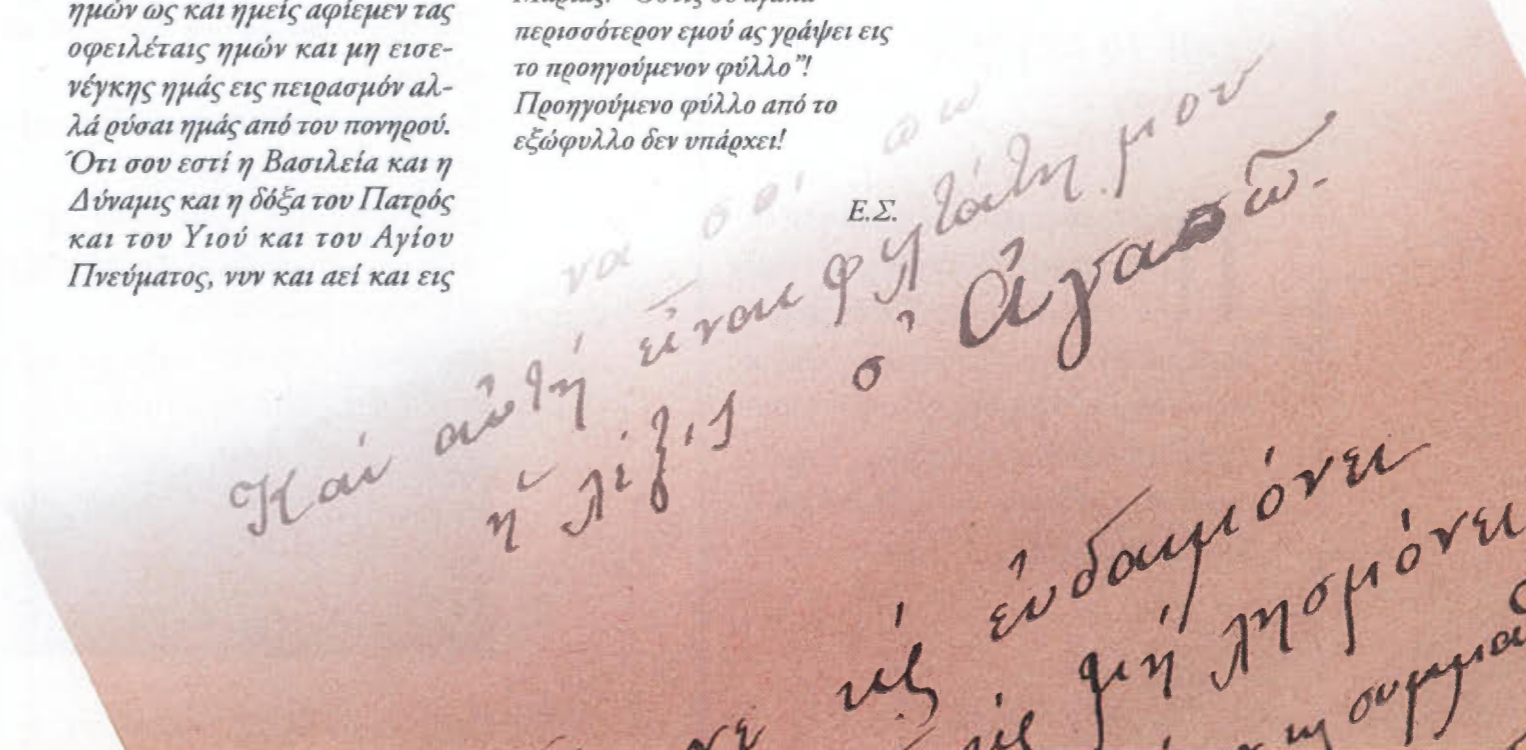 ημών ως και ημείς αφίεμεν τας
οφειλέταις ημών και μη εισε-
νέγκης ημάς εις πειρασμόν αλ-
λά ρύσαι ημάς από του πονηρού.
Ότι σου εστί η Βασιλεία και η
Δύναμις και η δόξα του Πατρός
και του Υιού και του Αγίου
Πνεύματος, νυν και αεί και εις
περισσότερον εμού ας γράψει εις
το προηγούμενον φύλλο"!
Προηγούμενο φύλλο από το
εξώφυλλο δεν υπάρχει!
Ε.Σ.
νὰ σοῦ
Καὶ αὐτὴ εἶναι φιλτάτη μου
ἡ λέξις σ' Ἀγαπῶ.
εὐδαιμόνει
μὴ λησμόνει